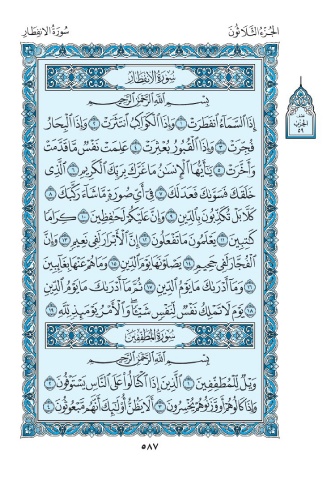 سُورَةُ الانفِطَارِ
الجُزْءُ الثَّلَاثُونَ
سُورَةُ الانفِطَارِ
بِسْمِ اللَّهِ الرَّحْمَٰنِ الرَّحِيمِ
إِذَا السَّمَاءُ انفَطَرَتْ ١ وَإِذَا الْكَوَاكِبُ انتَثَرَتْ ٢ وَإِذَا الْبِحَارُ
فُجِّرَتْ ٣ وَإِذَا الْقُبُورُ بُعْثِرَتْ ٤ عَلِمَتْ نَفْسٌ مَّا قَدَّمَتْ
وَأَخَّرَتْ ٥ يَٰأَيُّهَا الْإِنسَٰنُ مَا غَرَّكَ بِرَبِّكَ الْكَرِيمِ ٦ الَّذِي
خَلَقَكَ فَسَوَّىٰكَ فَعَدَلَكَ ٧ فِي أَيِّ صُورَةٍ مَّا شَاءَ رَكَّبَكَ ٨
كَلَّا بَلْ تُكَذِّبُونَ بِالدِّينِ ٩ وَإِنَّ عَلَيْكُمْ لَحَٰفِظِينَ ١٠ كِرَامًا
كَٰتِبِينَ ١١ يَعْلَمُونَ مَا تَفْعَلُونَ ١٢ إِنَّ الْأَبْرَارَ لَفِي نَعِيمٍ ١٣ وَإِنَّ
الْفُجَّارَ لَفِي جَحِيمٍ ١٤ يَصْلَوْنَهَا يَوْمَ الدِّينِ ١٥ وَمَا هُمْ عَنْهَا بِغَائِبِينَ
١٦ وَمَا أَدْرَىٰكَ مَا يَوْمُ الدِّينِ ١٧ ثُمَّ مَا أَدْرَىٰكَ مَا يَوْمُ الدِّينِ
١٨ يَوْمَ لَا تَمْلِكُ نَفْسٌ لِّنَفْسٍ شَيْئًا وَالْأَمْرُ يَوْمَئِذٍ لِّلَّهِ ١٩
سُورَةُ المُطَفِّفِينَ
بِسْمِ اللَّهِ الرَّحْمَٰنِ الرَّحِيمِ
وَيْلٌ لِّلْمُطَفِّفِينَ ١ الَّذِينَ إِذَا اكْتَالُوا عَلَى النَّاسِ يَسْتَوْفُونَ ٢
وَإِذَا كَالُوهُمْ أَو وَّزَنُوهُمْ يُخْسِرُونَ ٣ أَلَا يَظُنُّ أُولَٰئِكَ أَنَّهُم مَّبْعُوثُونَ ٤
الحِزْبُ
٥٩
٥٨٧